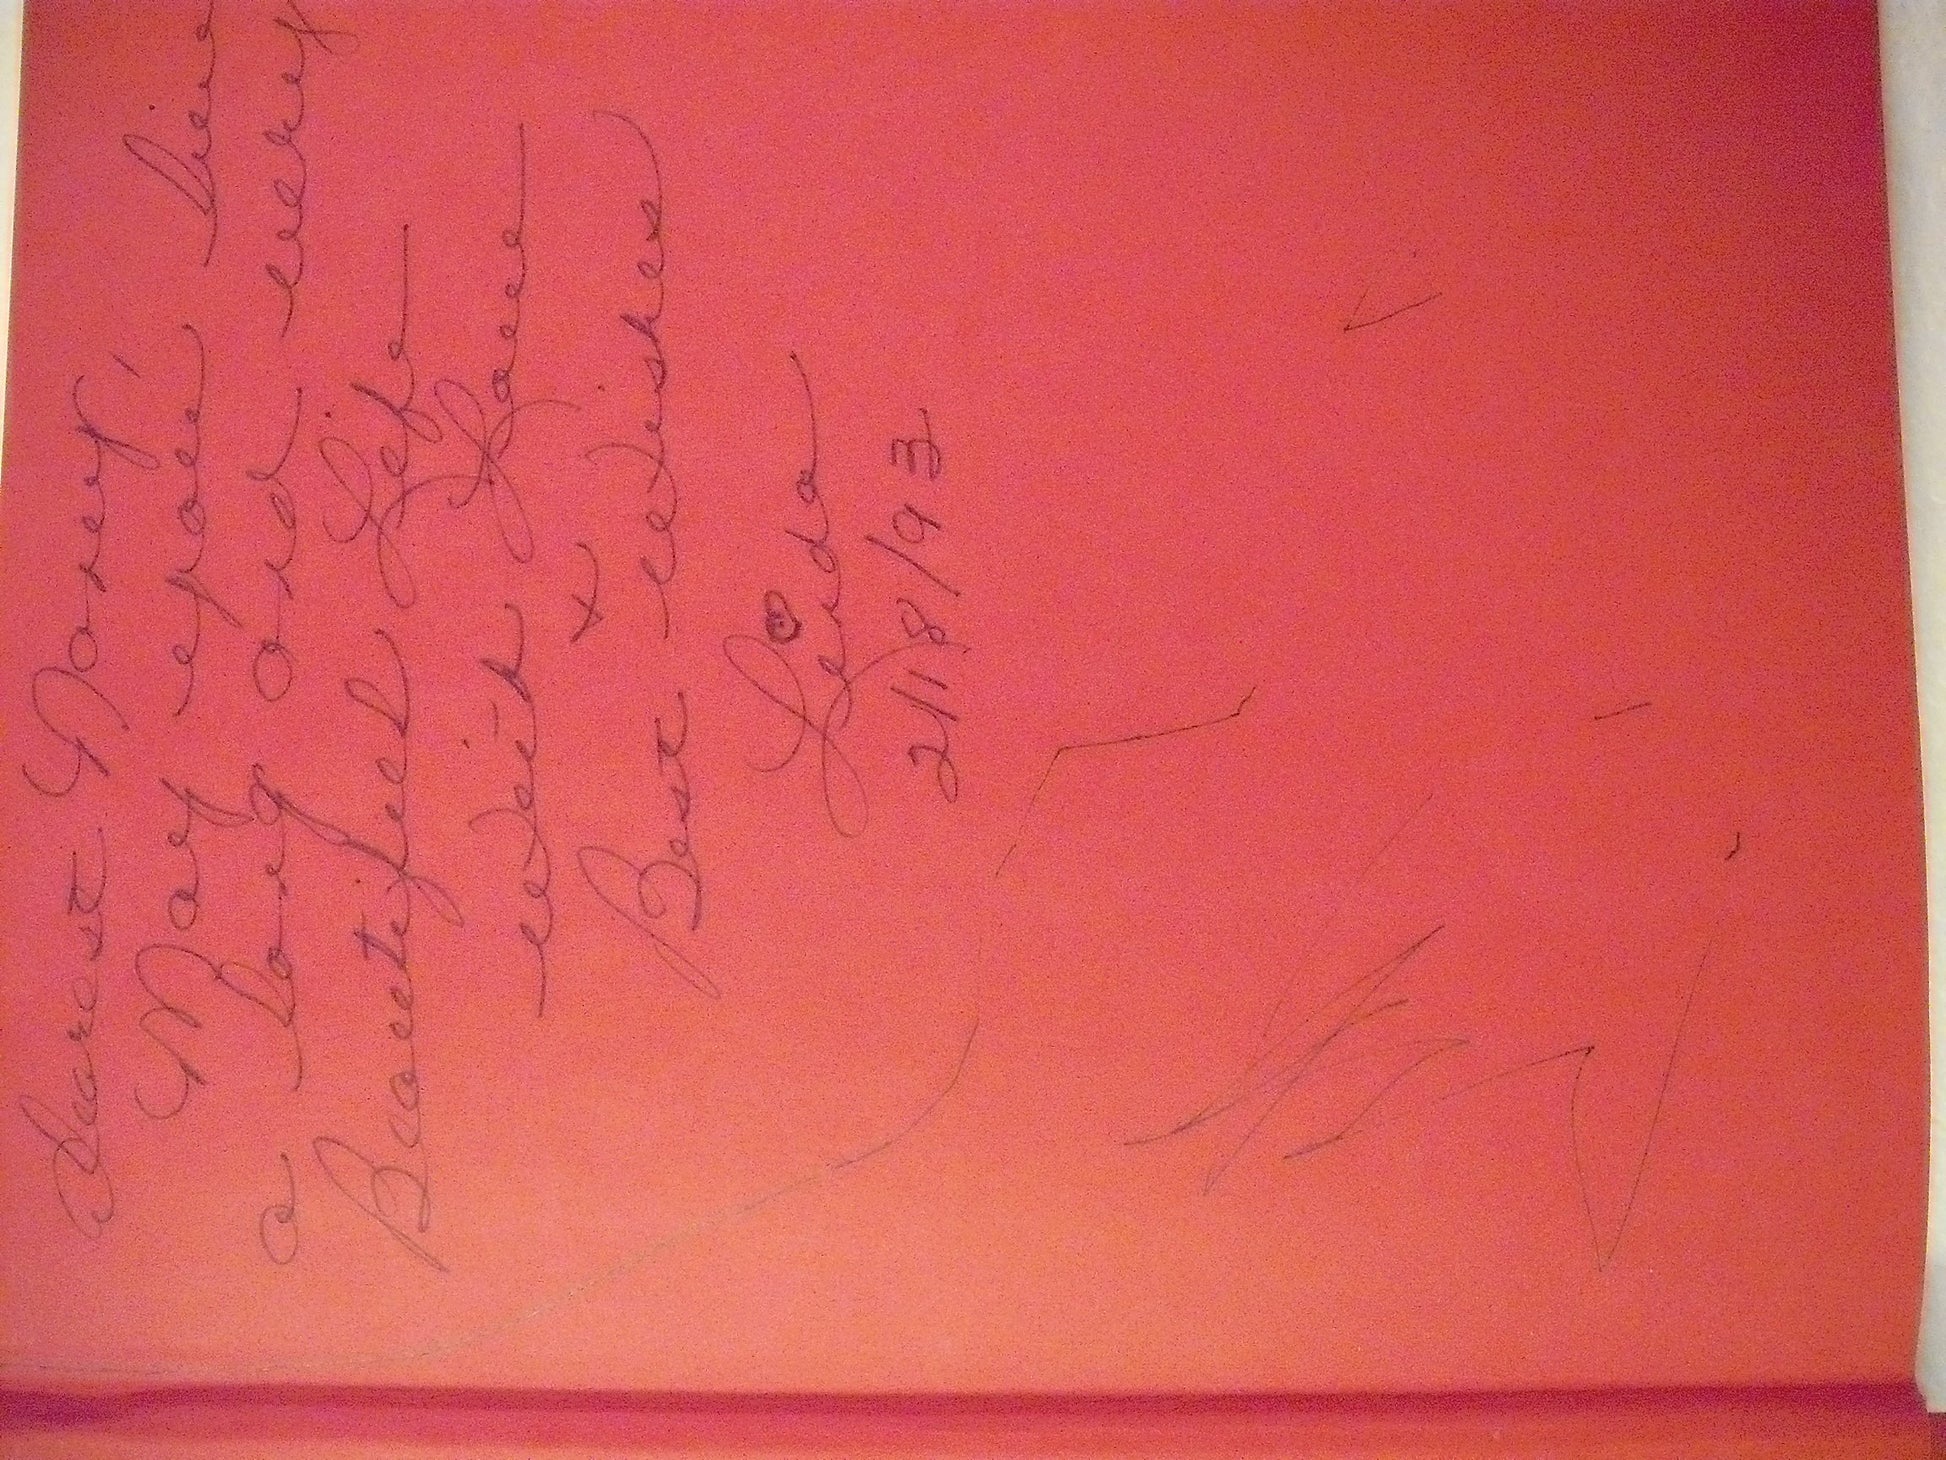 Dearest Nancy,
May you live
a long and very
Beautiful Life
with Love
+
Best wishes
Linda
2/18/93